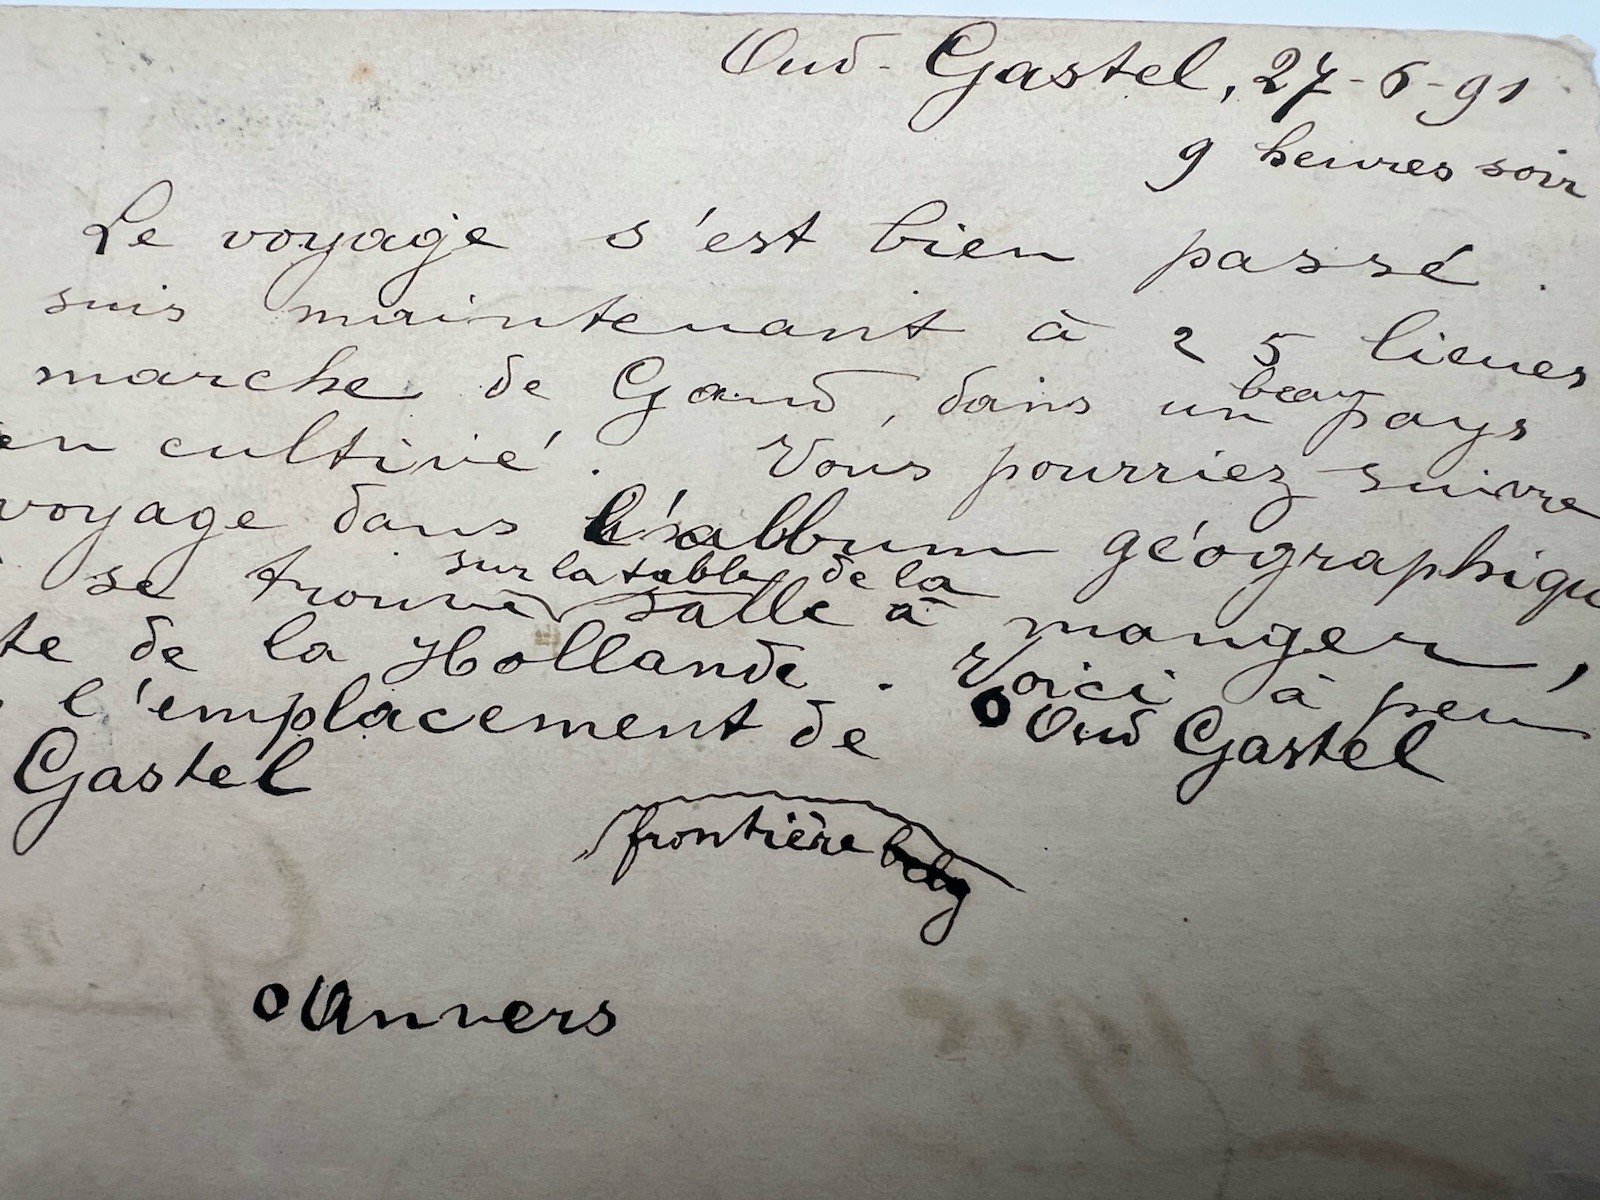 Oud-Gastel, 27-6-91
9 heures soir
Le voyage s'est bien passé.
suis maintenant à 25 lieues
marche de Gand, dans un beau pays
en cultivé. Vous pourriez suivre
voyage dans l'album géographiqu
se trouve sur la table de la salle à manger,
te de la Hollande. Voici à peu
l'emplacement de
Gastel
Oud Gastel
frontière belg
Anvers